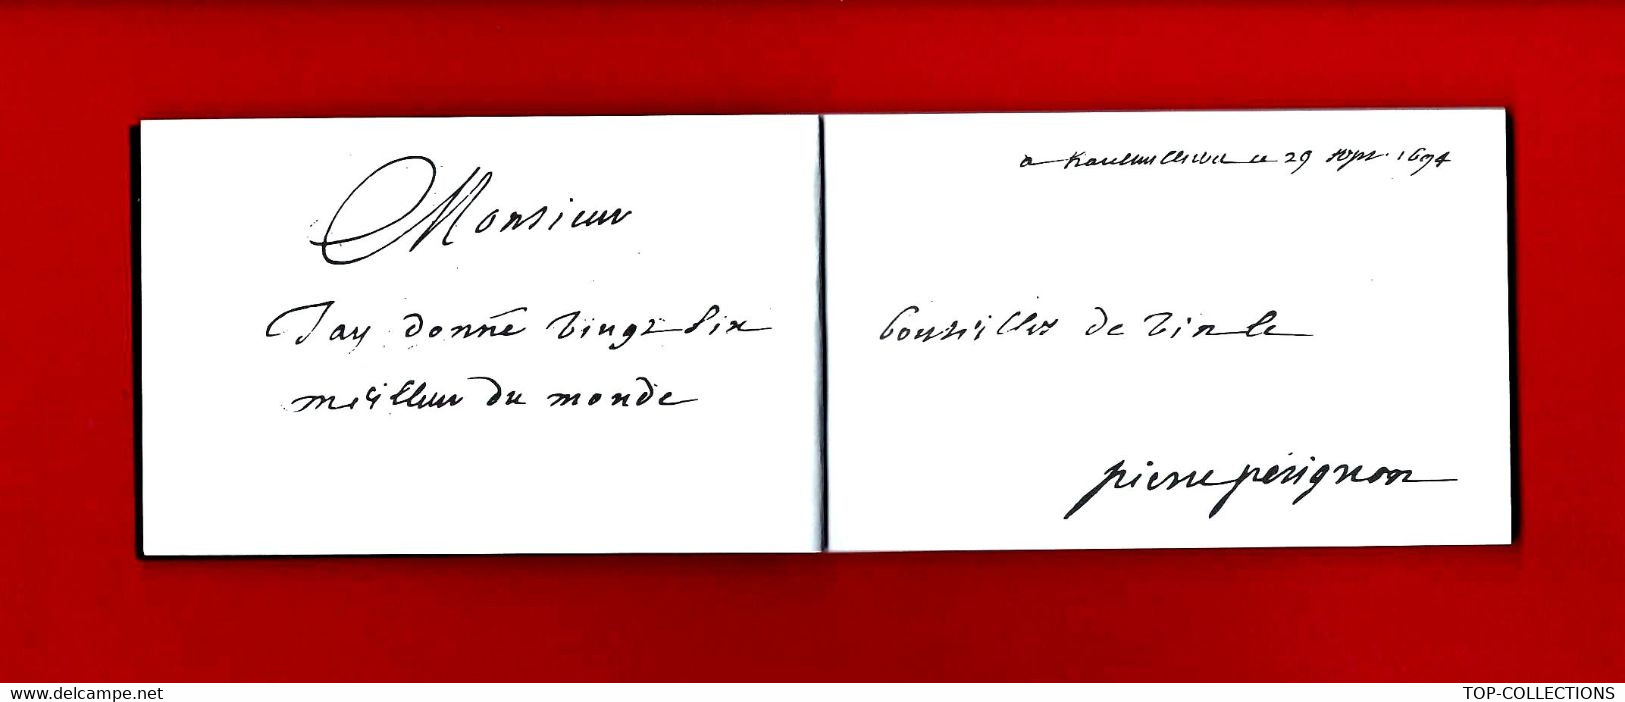 Monsieur
a hautvillers ce 29 sept. 1694
Jay donné vingt six bouteilles de vin le
meilleur du monde
pierre pérignon
www.delcampe.net
TOP-COLLECTIONS